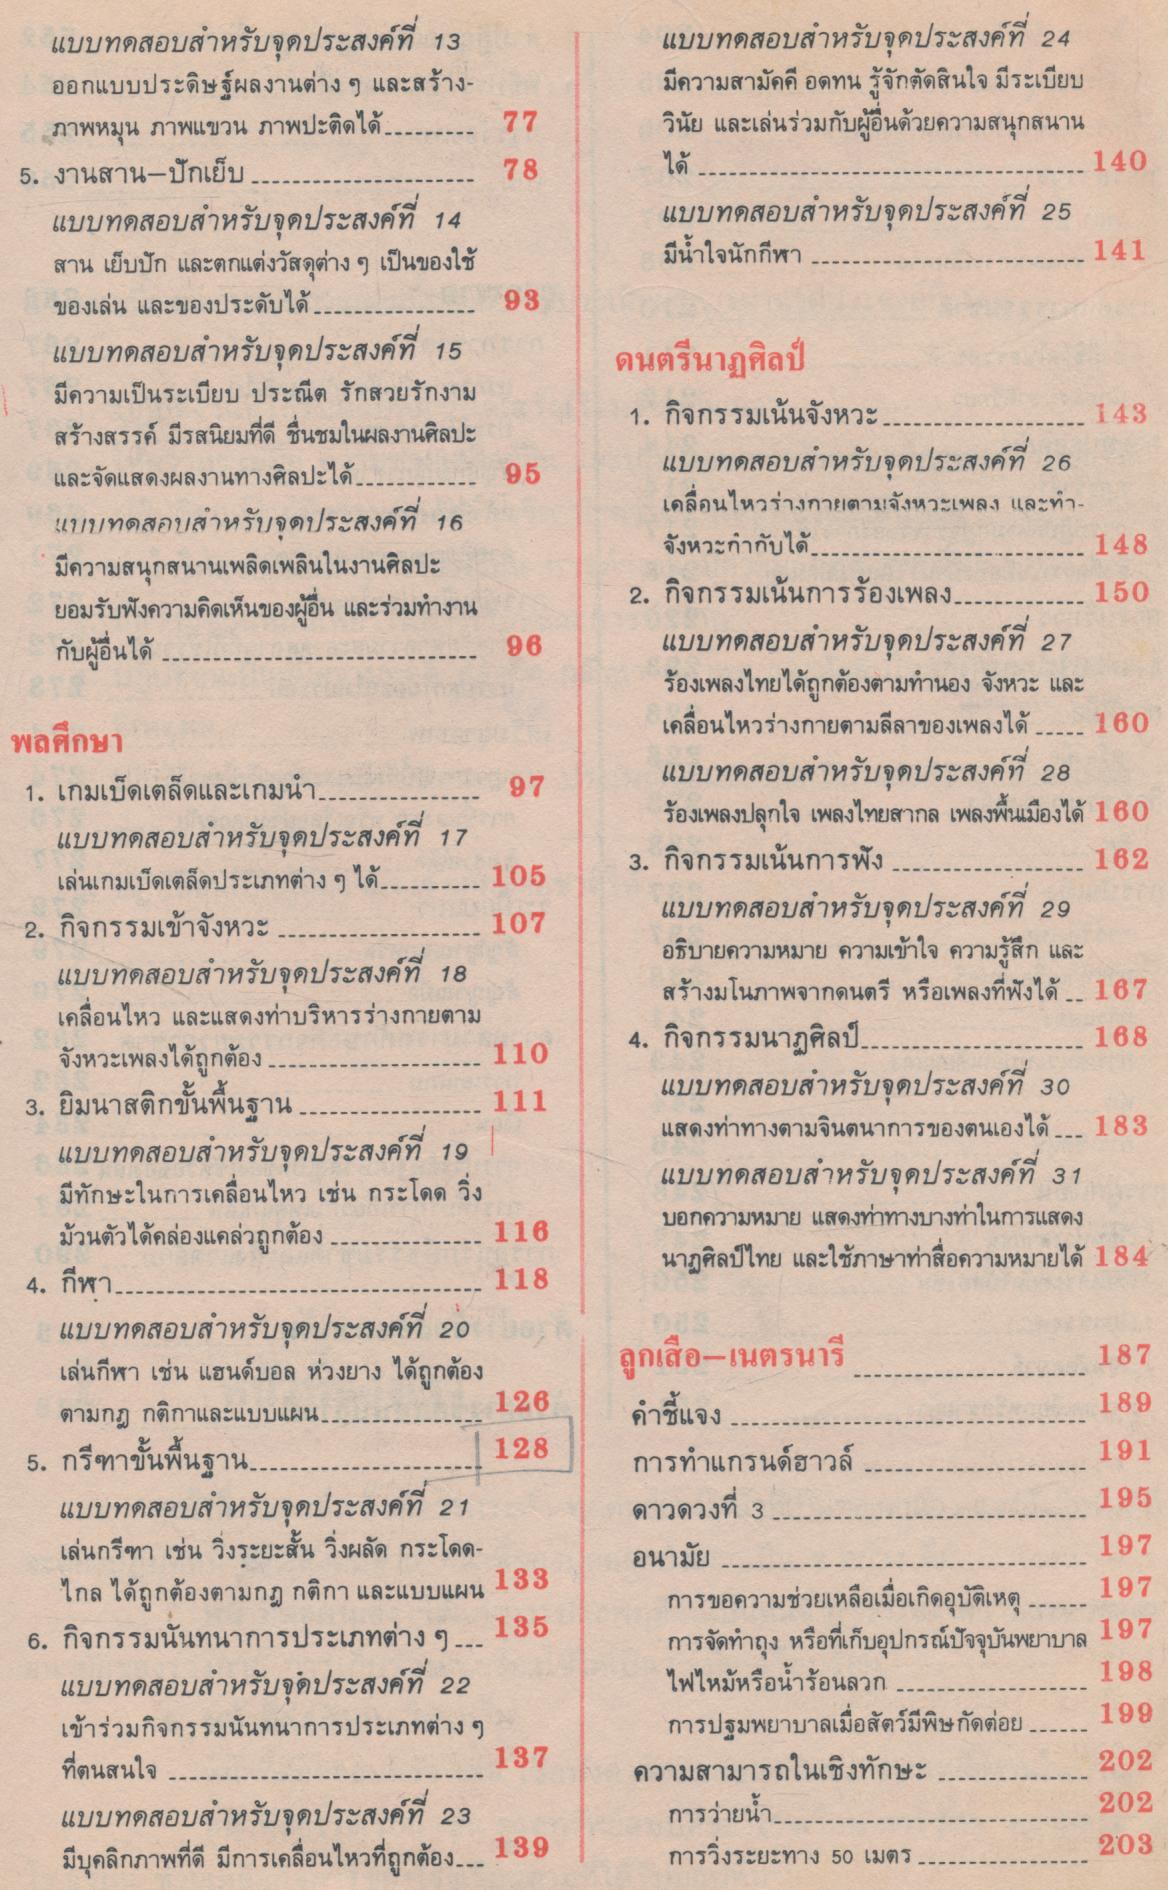 แบบทดสอบสำหรับจุดประสงค์ที่ 13
ออกแบบประดิษฐ์ผลงานต่าง ๆ และสร้าง-
ภาพหมุน ภาพแขวน ภาพปะติดได้ 77
5. งานสาน–ปักเย็บ 78
แบบทดสอบสำหรับจุดประสงค์ที่ 14
สาน เย็บปัก และตกแต่งวัสดุต่าง ๆ เป็นของใช้
ของเล่น และของประดับได้ 93
แบบทดสอบสำหรับจุดประสงค์ที่ 15
มีความเป็นระเบียบ ประณีต รักสวยรักงาม
สร้างสรรค์ มีรสนิยมที่ดี ชื่นชมในผลงานศิลปะ
และจัดแสดงผลงานทางศิลปะได้ 95
แบบทดสอบสำหรับจุดประสงค์ที่ 16
มีความสนุกสนานเพลิดเพลินในงานศิลปะ
ยอมรับฟังความคิดเห็นของผู้อื่น และร่วมทำงาน
กับผู้อื่นได้ 96
พลศึกษา
1. เกมเบ็ดเตล็ดและเกมนำ 97
แบบทดสอบสำหรับจุดประสงค์ที่ 17
เล่นเกมเบ็ดเตล็ดประเภทต่าง ๆ ได้ 105
2. กิจกรรมเข้าจังหวะ 107
แบบทดสอบสำหรับจุดประสงค์ที่ 18
เคลื่อนไหว และแสดงท่าบริหารร่างกายตาม
จังหวะเพลงได้ถูกต้อง 110
3. ยิมนาสติกขั้นพื้นฐาน 111
แบบทดสอบสำหรับจุดประสงค์ที่ 19
มีทักษะในการเคลื่อนไหว เช่น กระโดด วิ่ง
ม้วนตัวได้คล่องแคล่วถูกต้อง 116
4. กีฬา 118
แบบทดสอบสำหรับจุดประสงค์ที่ 20
เล่นกีฬา เช่น แฮนด์บอล ห่วงยาง ได้ถูกต้อง
ตามกฎ กติกาและแบบแผน 126
5. กรีฑาขั้นพื้นฐาน 128
แบบทดสอบสำหรับจุดประสงค์ที่ 21
เล่นกรีฑา เช่น วิ่งระยะสั้น วิ่งผลัด กระโดด-
ไกล ได้ถูกต้องตามกฎ กติกา และแบบแผน 133
6. กิจกรรมนันทนาการประเภทต่าง ๆ 135
แบบทดสอบสำหรับจุดประสงค์ที่ 22
เข้าร่วมกิจกรรมนันทนาการประเภทต่าง ๆ
ที่ตนสนใจ 137
แบบทดสอบสำหรับจุดประสงค์ที่ 23
มีบุคลิกภาพที่ดี มีการเคลื่อนไหวที่ถูกต้อง 139
แบบทดสอบสำหรับจุดประสงค์ที่ 24
มีความสามัคคี อดทน รู้จักตัดสินใจ มีระเบียบ
วินัย และเล่นร่วมกับผู้อื่นด้วยความสนุกสนาน
ได้ 140
แบบทดสอบสำหรับจุดประสงค์ที่ 25
มีน้ำใจนักกีฬา 141
ดนตรีนาฏศิลป์
1. กิจกรรมเน้นจังหวะ 143
แบบทดสอบสำหรับจุดประสงค์ที่ 26
เคลื่อนไหวร่างกายตามจังหวะเพลง และทำ-
จังหวะกำกับได้ 148
2. กิจกรรมเน้นการร้องเพลง 150
แบบทดสอบสำหรับจุดประสงค์ที่ 27
ร้องเพลงไทยได้ถูกต้องตามทำนอง จังหวะ และ
เคลื่อนไหวร่างกายตามลีลาของเพลงได้ 160
แบบทดสอบสำหรับจุดประสงค์ที่ 28
ร้องเพลงปลุกใจ เพลงไทยสากล เพลงพื้นเมืองได้ 160
3. กิจกรรมเน้นการฟัง 162
แบบทดสอบสำหรับจุดประสงค์ที่ 29
อธิบายความหมาย ความเข้าใจ ความรู้สึก และ
สร้างมโนภาพจากดนตรี หรือเพลงที่ฟังได้ 167
4. กิจกรรมนาฏศิลป์ 168
แบบทดสอบสำหรับจุดประสงค์ที่ 30
แสดงท่าทางตามจินตนาการของตนเองได้ 183
แบบทดสอบสำหรับจุดประสงค์ที่ 31
บอกความหมาย แสดงท่าทางบางท่าในการแสดง
นาฏศิลป์ไทย และใช้ภาษาท่าสื่อความหมายได้ 184
ลูกเสือ–เนตรนารี 187
คำชี้แจง 189
การทำแกรนด์ฮาวล์ 191
ดาวดวงที่ 3 195
อนามัย 197
การขอความช่วยเหลือเมื่อเกิดอุบัติเหตุ 197
การจัดทำถุง หรือที่เก็บอุปกรณ์ปัจจุบันพยาบาล 197
ไฟไหม้หรือน้ำร้อนลวก 198
การปฐมพยาบาลเมื่อสัตว์มีพิษกัดต่อย 199
ความสามารถในเชิงทักษะ 202
การว่ายน้ำ 202
การวิ่งระยะทาง 50 เมตร 203